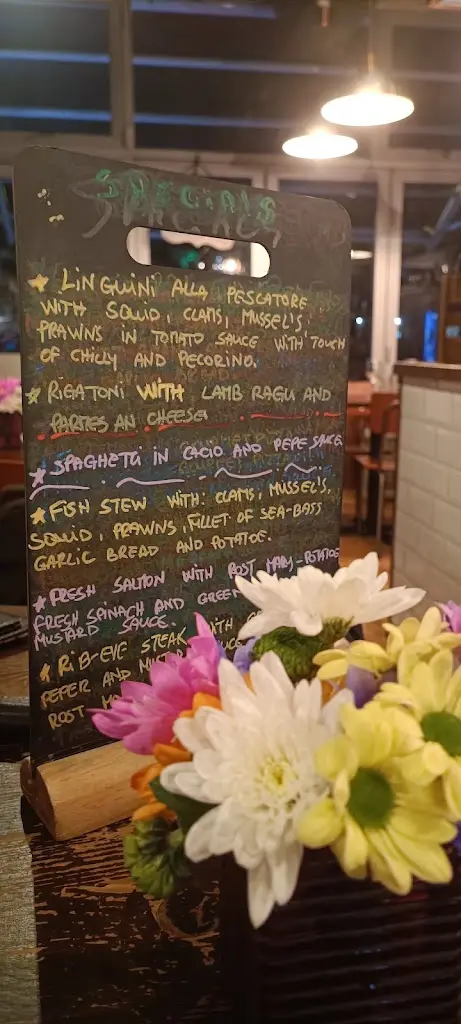 SPECIALS
LINGUINI ALLA PESCATORE
WITH SQUID, CLAMS, MUSSEL'S,
PRAWNS IN TOMATO SAUCE WITH TOUCH
OF CHILLY AND PECORINO.
RIGATONI WITH LAMB RAGU AND
PARMES AN CHEESE
SPAGHETTI IN CACIO AND PEPE SAUCE
FISH STEW WITH: CLAMS, MUSSEL'S,
SQUID, PRAWNS, FILLET OF SEA-BASS
GARLIC BREAD AND POTATOE.
FRESH SALMON WITH ROST MARY-POTATOE
FRESH SPINACH AND GREEN
MUSTARD SAUCE.
RIB-EYE STEAK WITH
PEPER AND
ROST